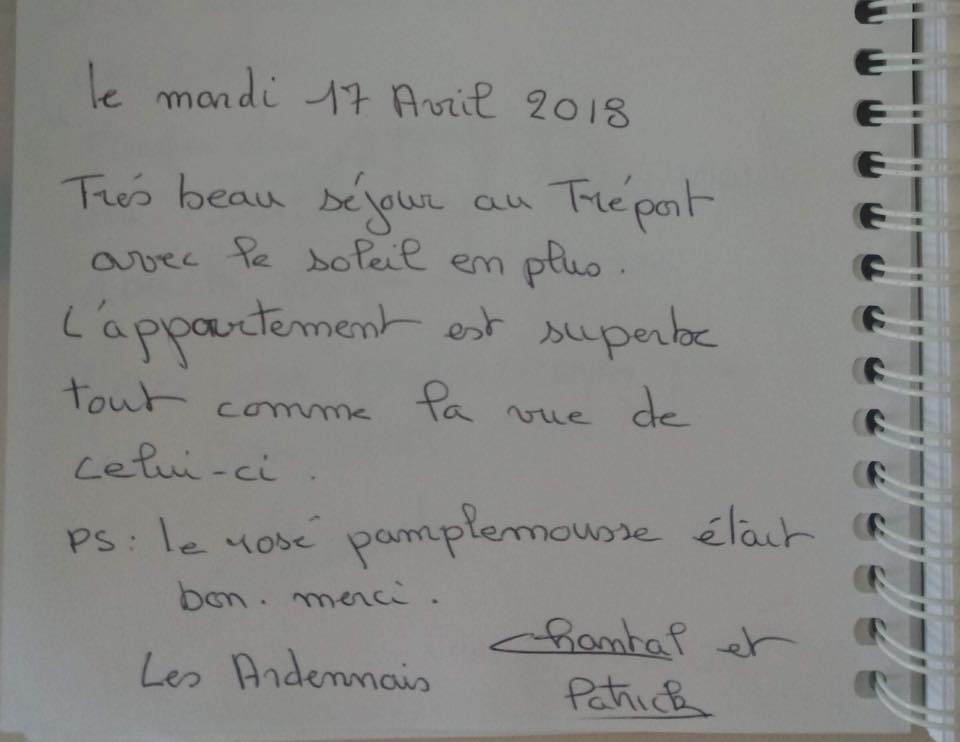 le mardi 17 Avril 2018
Très beau séjour au Tréport
avec le soleil en plus.
L'appartement est superbe
tout comme la vue de
celui-ci.
PS: le rosé pamplemousse était
bon. merci.
Les Ardennais Chantal et
Patrick